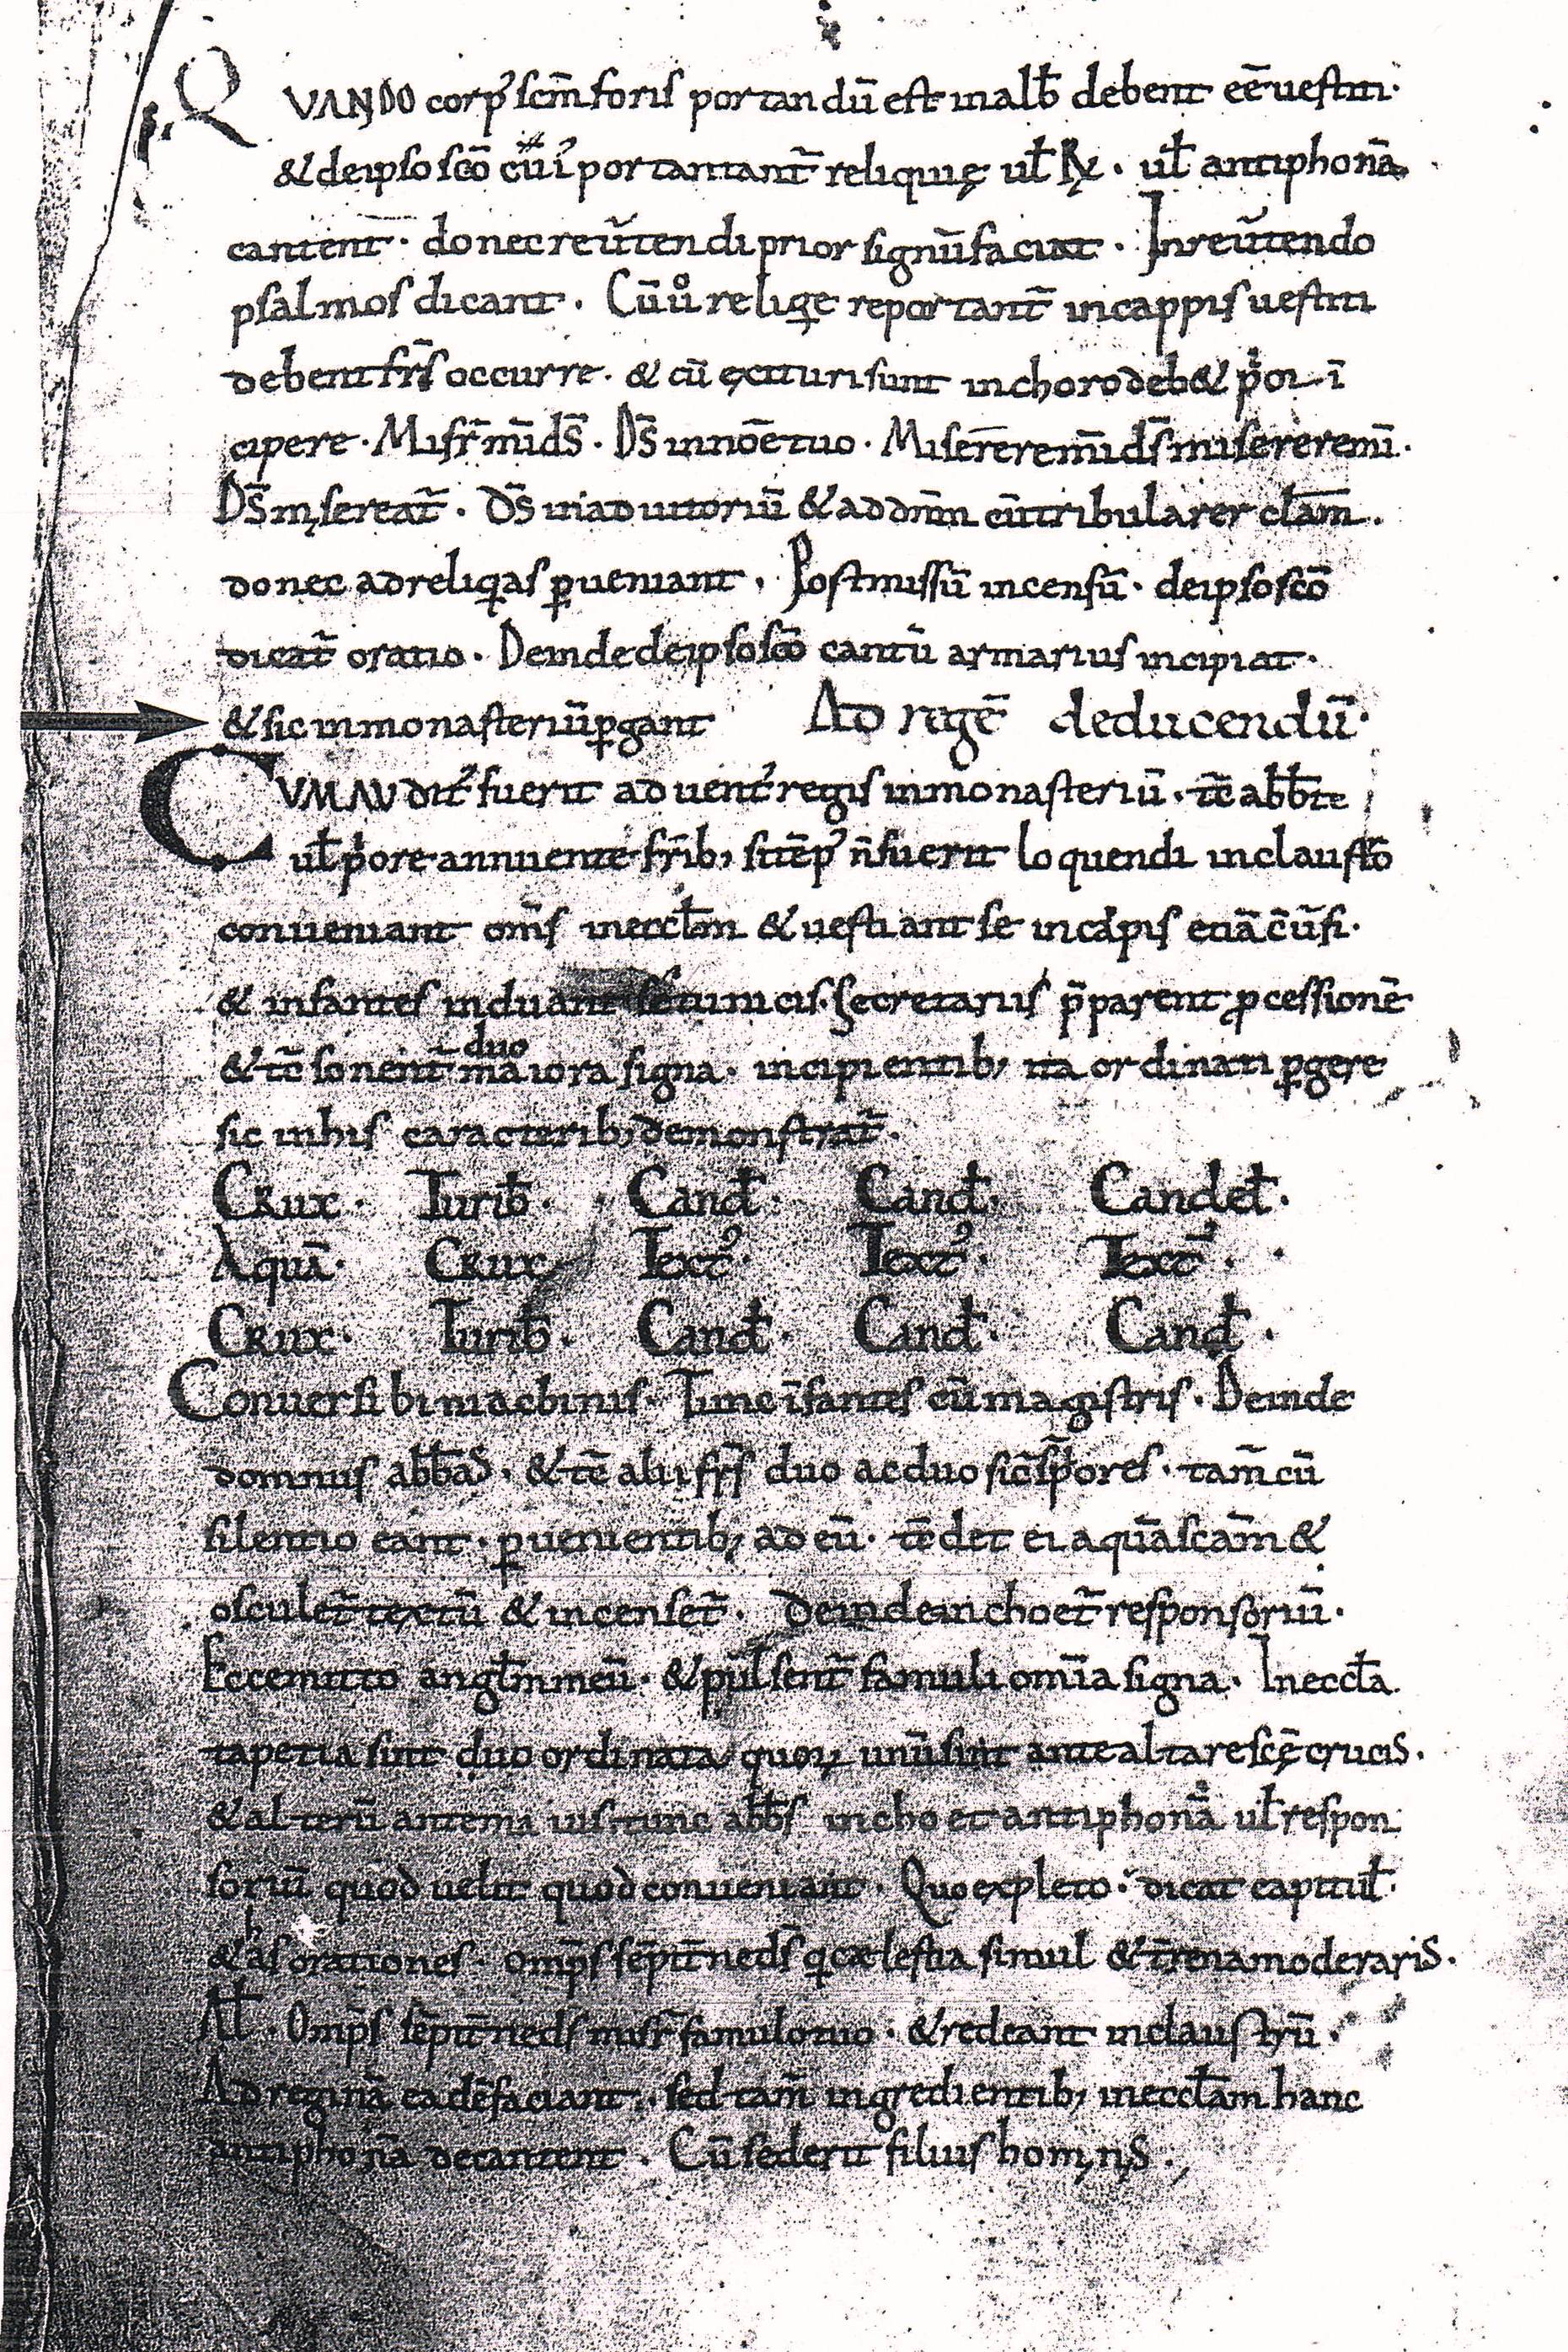 QVANDO corp᾽ scm̄ foris portandū est in alb̄ debent eē uestiti.
& de ipso scō cū i portantant᷑ reliquię ul̄ R̸. ul̄ antiphonā
cantent. donec reūtendi prior signū faciat. In reūtendo
psalmos dicant. Cū ů reliq̨e reportant᷑ in cappis uestiti
debent fr̄s occurre. & cū ęxituri sunt in choro deb& p̄or ī
cipere. Misr̄ m̄i ds̄. Ds̄ in noē tuo. Miserēre m̄i ds̄ miserere mī.
Ds̄ misereat᷑. Ds̄ in adiutoriū & ad dnm̄ cū tribularer clam̄.
donec ad reliqas ꝑueniant. Post missū incensū. de ipso scō
dicat᷑ oratio. Deinde de ipso scō cantū armarius incipiat.
& sic in monasteriū ꝑgant Ad regē deducendū.
CVM AVdit᷑ fuerit aduent᾽ regis in monasteriū. tc̄ abb̄te
ul̄ p̄ore annuente fr̄ib; si tēp᾽ n̄ fuerit loquendi in claustro
conueniant om̄s in eccl̄am & uestiant se in cappis etiā c̄ūsi.
& infantes induant se tunicis. Secretariis p̄parent ꝓcessionē
& tc̄ sonent᷑ duo maiora signa. incipientib; ita ordinati ꝑgere
sic in his caracterib; demonstrat᷑.
Crux. Turib̄. Cand̄. Cand̄. Candel̄.
Aquā. Crux Text᾽. Text᾽. Text᾽.
Crux. Turib̄. Cand̄. Cand̄. Cand̄.
Conuersi bini ac binis. Tunc īfantes cū magistris. Deinde
domnus abb̄as. & tc̄ alii fr̄s duo ac duo sic̄ s̄ p̄ores. tam̄ cū
silentio eant. ꝑuenientib; ad eū. tc̄ det ei aquā scam̄ &
osculet᷑ textū & incenset᷑. Deinde inchoet᷑ responsoriū.
Ecce mitto angl̄m meū. & pulsent᷑ famuli omīa signa. In eccl̄a
tapetia sint duo ordinata quoꝝ unū sint ante altare scę̄ crucis.
& alterū ante maius tunc abb̄s inchoet antiphonā ul̄ respon
soriū quod uelit quod conueniant. Quo expleto. dicat capitul̄.
& as orationes. omp̄s sēpit̄ne ds̄ q̄ cælestia simul & t̄rena moderaris.
Al̄. Omp̄s sēpit̄ne ds̄ misr̄ famulo tuo. & redeant in claustrū.
Ad reginā eadē faciant. sed tam̄ ingredientib; in eccl̄am hanc
antiphonā decantent. Cū sederit filius hominis.